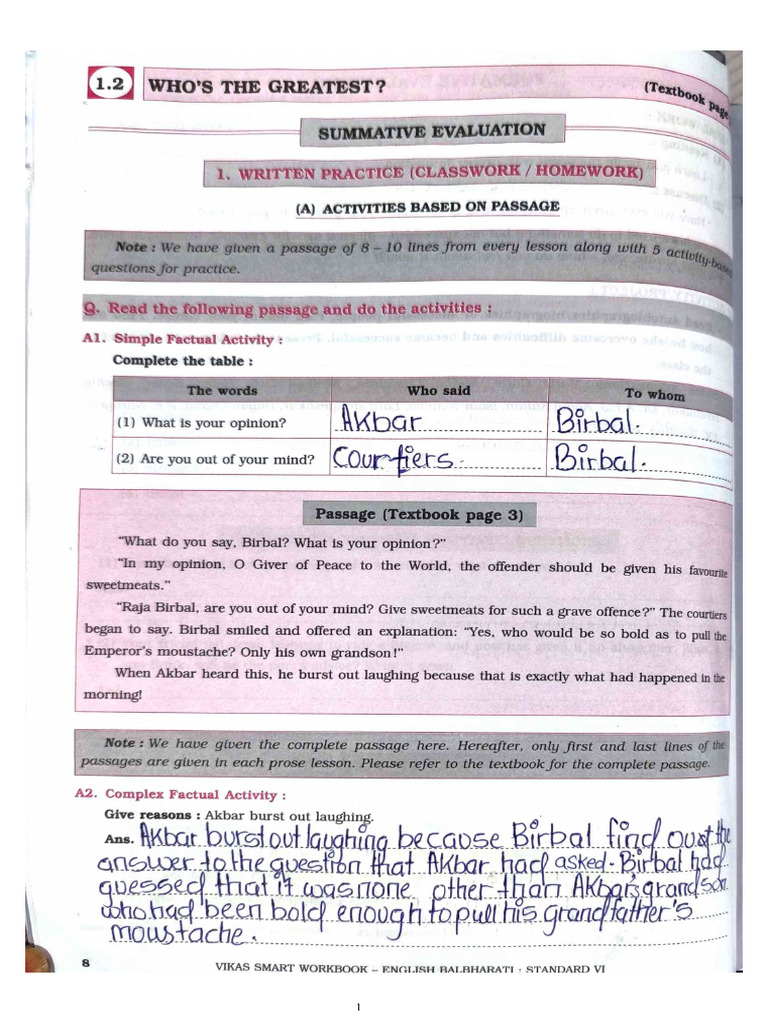 1.2 WHO'S THE GREATEST?
(Textbook page
SUMMATIVE EVALUATION
1. WRITTEN PRACTICE (CLASSWORK / HOMEWORK)
(A) ACTIVITIES BASED ON PASSAGE
Note : We have given a passage of 8 – 10 lines from every lesson along with 5 activity-based
questions for practice.
Q. Read the following passage and do the activities :
A1. Simple Factual Activity :
Complete the table :
The words Who said To whom
(1) What is your opinion? Akbar Birbal.
(2) Are you out of your mind? Courtiers. Birbal.
Passage (Textbook page 3)
"What do you say, Birbal? What is your opinion?"
"In my opinion, O Giver of Peace to the World, the offender should be given his favourite
sweetmeats."
"Raja Birbal, are you out of your mind? Give sweetmeats for such a grave offence?" The courtiers
began to say. Birbal smiled and offered an explanation: "Yes, who would be so bold as to pull the
Emperor's moustache? Only his own grandson!"
When Akbar heard this, he burst out laughing because that is exactly what had happened in the
morning!
Note : We have given the complete passage here. Hereafter, only first and last lines of the
passages are given in each prose lesson. Please refer to the textbook for the complete passage.
A2. Complex Factual Activity :
Give reasons : Akbar burst out laughing.
Ans. Akbar burst out laughing because Birbal find out the
answer to the question that Akbar had asked. Birbal had
guessed that it was none other than Akbar's grandson
who had been bold enough to pull his grandfather's
moustache.
8 VIKAS SMART WORKBOOK – ENGLISH BALBHARATI : STANDARD VI
1